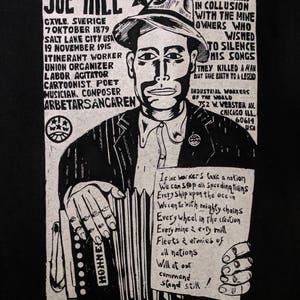 JOE HILL
GÄVLE, SVERIGE
7 OKTOBER 1879
SALT LAKE CITY USA
19 NOVEMBER 1915
ITINERANT WORKER
UNION ORGANIZER
LABOR AGITATOR
CARTOONIST POET
MUSICIAN, COMPOSER
ARBETARSÅNGAREN
IWW
IN COLLUSION
WITH THE MINE
OWNERS WHO
WISHED
TO SILENCE
HIS SONGS
THEY KILLED A MAN
BUT GAVE BIRTH TO A LEGEND
INDUSTRIAL WORKERS
OF THE WORLD
752 W. WEBSTER AV.
CHICAGO ILL.
60614
USA
HOHNER
If we workers take a notion
We can stop all speeding trains
Every ship upon the ocean
We can tie with mighty chains
Every wheel in the creation
Every mine & every mill
Fleets & armies of
all nations
Will at our
command
stand still!